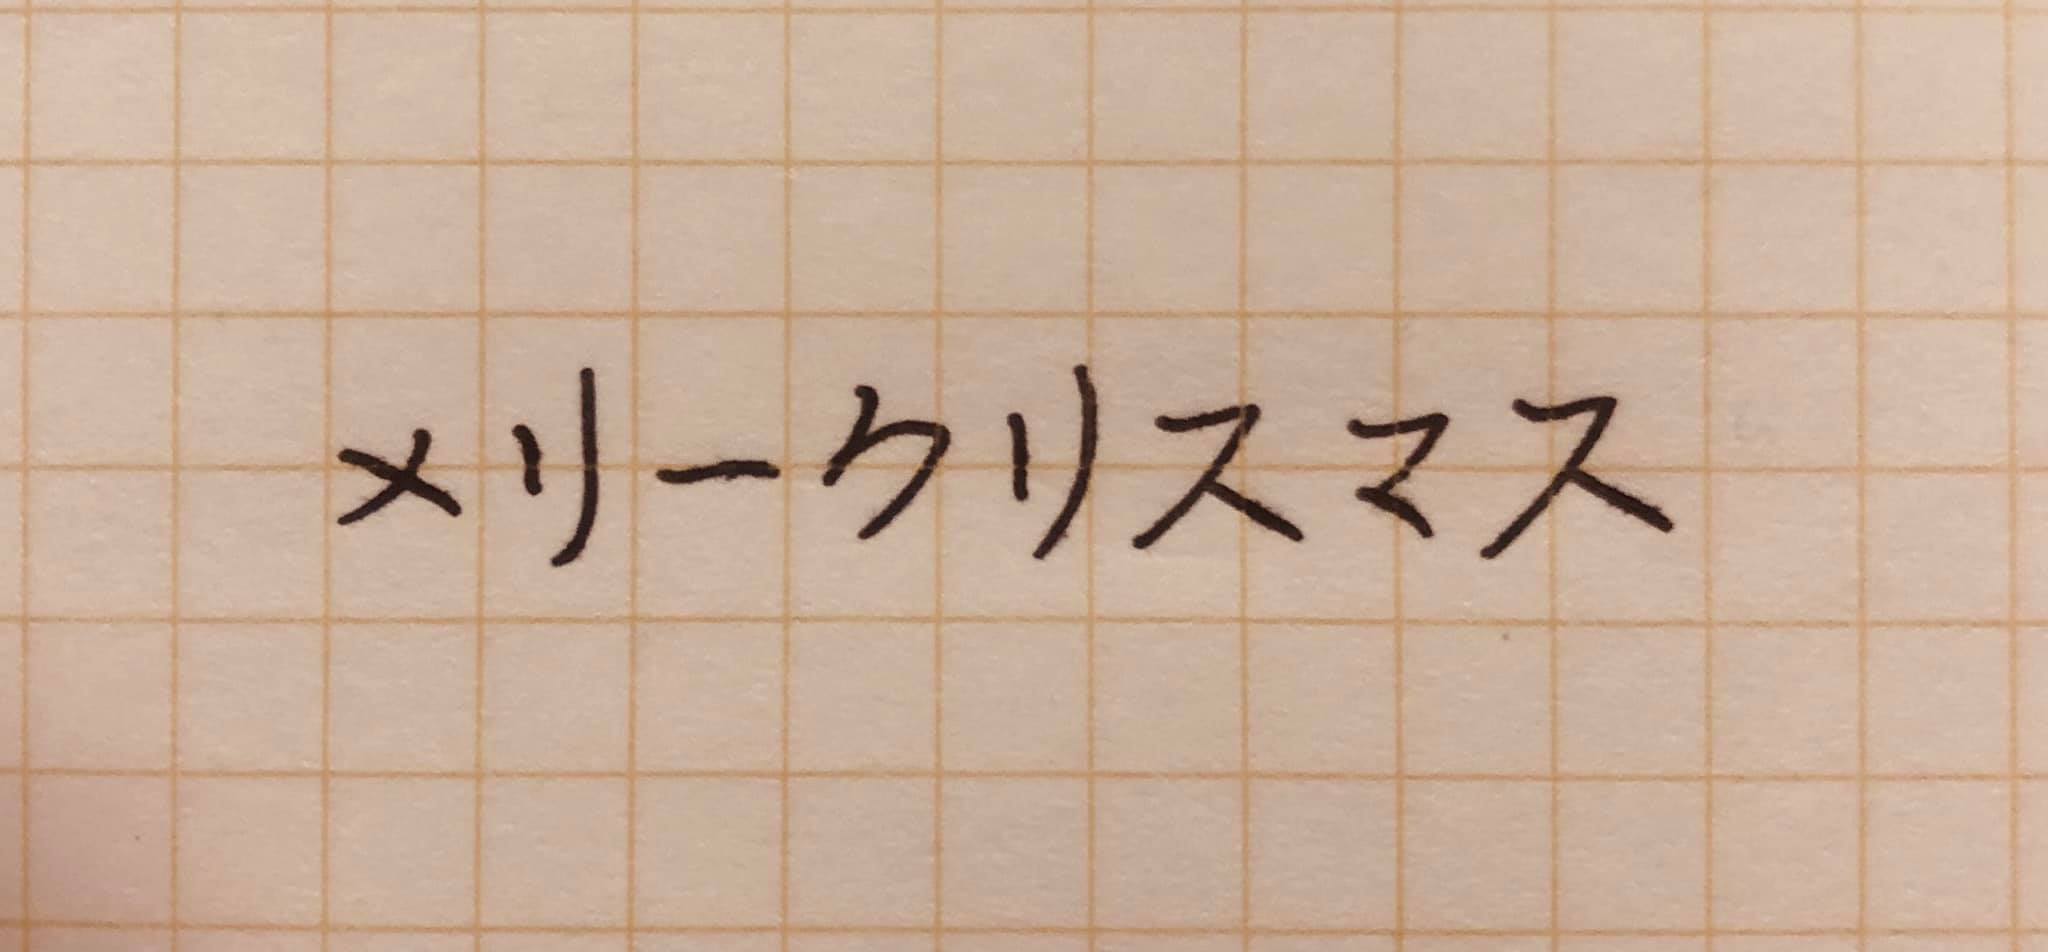 メリークリスマス